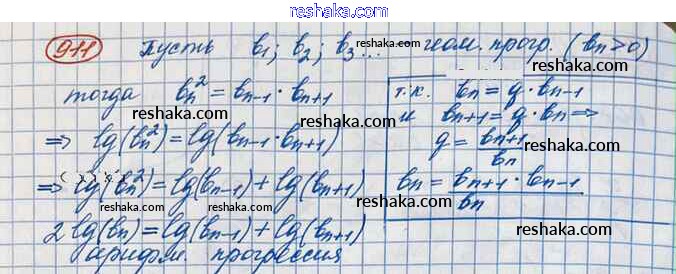 reshak.ru
911 Пусть b₁; b₂; b₃... – геом. прогр. (bₙ>0)
тогда bₙ² = bₙ₋₁ · bₙ₊₁
⇒ lg(bₙ²) = lg(bₙ₋₁ · bₙ₊₁)
⇒ lg(bₙ²) = lg(bₙ₋₁) + lg(bₙ₊₁)
2 lg(bₙ) = lg(bₙ₋₁) + lg(bₙ₊₁)
арифм. прогрессия
т.к. bₙ = q · bₙ₋₁
и bₙ₊₁ = q · bₙ ⇒
q = bₙ₊₁ / bₙ
bₙ = bₙ₊₁ · bₙ₋₁ / bₙ
reshaka.com
reshaka.com
reshaka.com
reshaka.com
reshaka.com
reshaka.com
reshaka.com
reshaka.com
reshaka.com